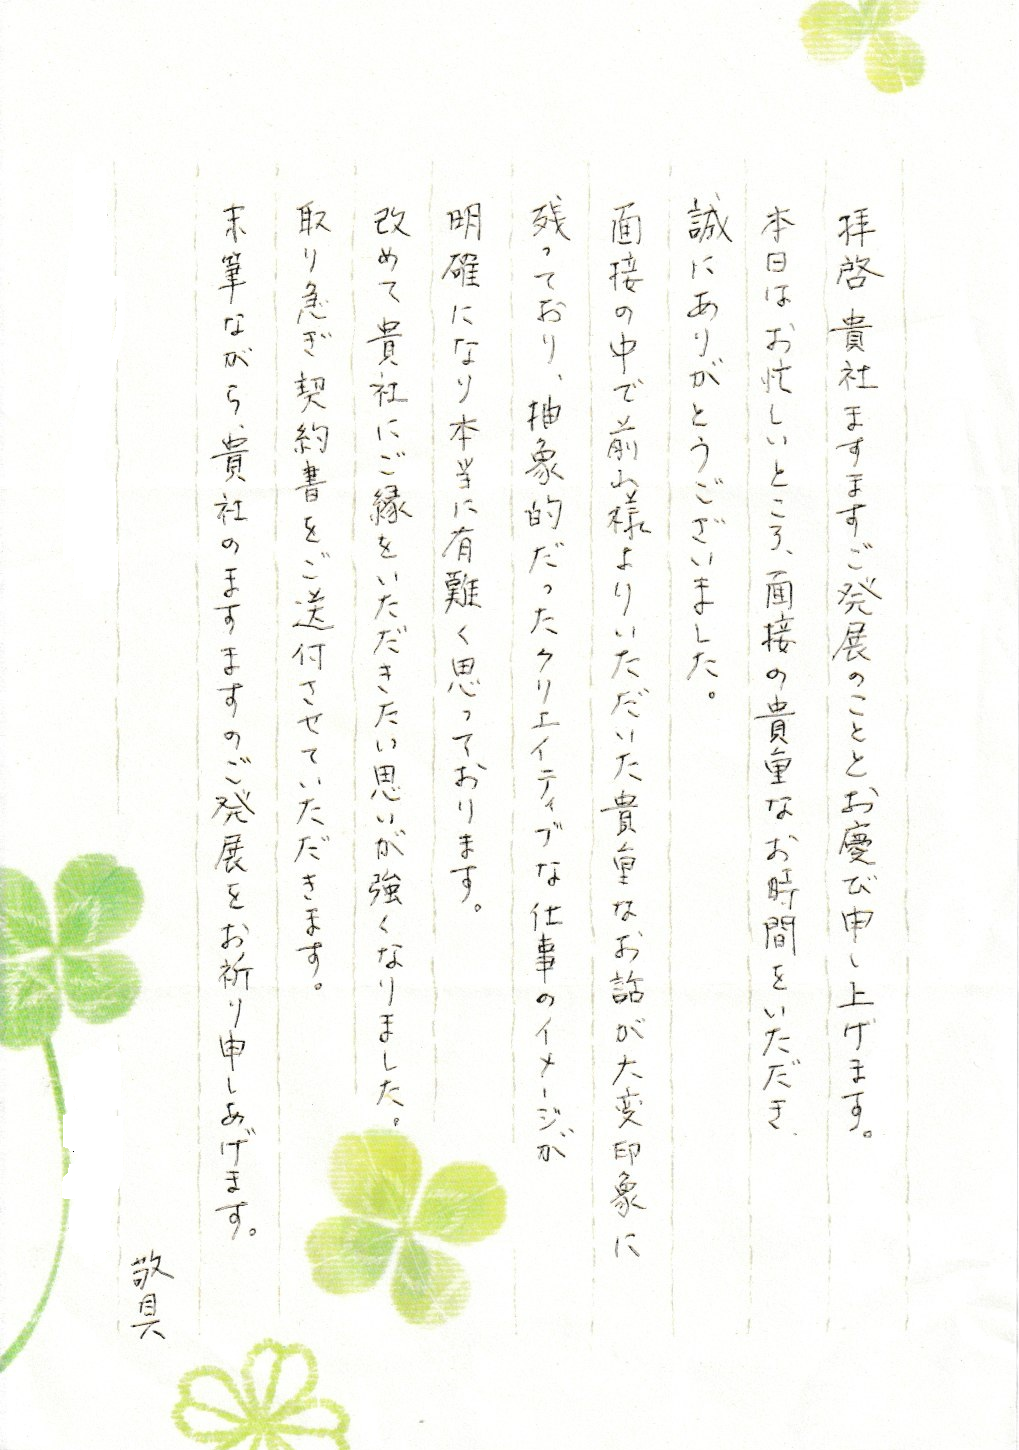 拝啓 貴社ますますご発展のこととお慶び申し上げます。
本日はお忙しいところ、面接の貴重なお時間をいただき、
誠にありがとうございました。
面接の中で前山様よりいただいた貴重なお話が大変印象に
残っており、抽象的だったクリエイティブな仕事のイメージが
明確になり本当に有難く思っております。
改めて貴社にご縁をいただきたい思いが強くなりました。
取り急ぎ契約書をご送付させていただきます。
末筆ながら、貴社のますますのご発展をお祈り申しあげます。
敬具